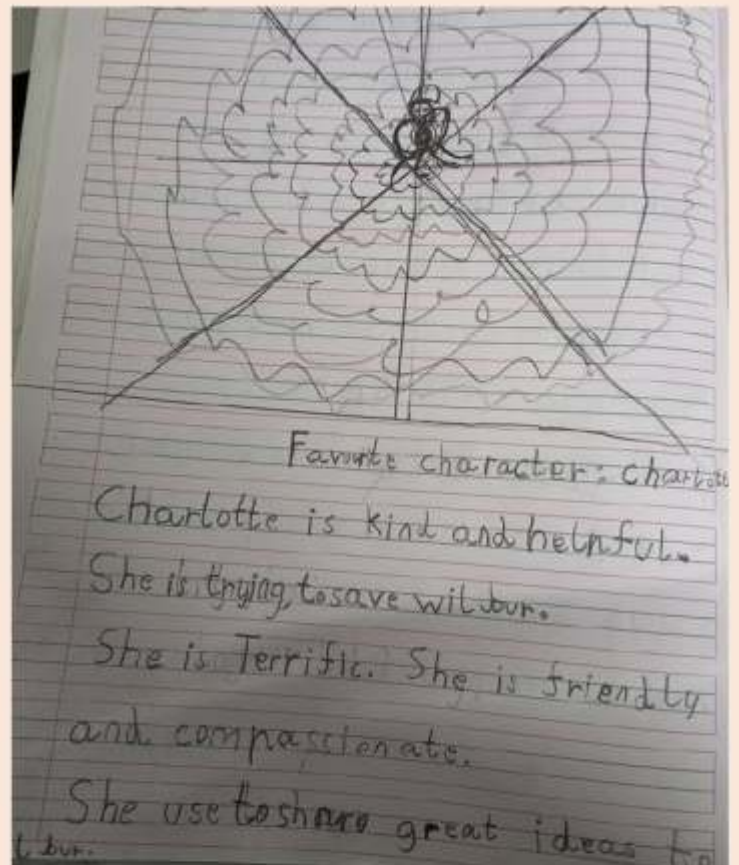 Favourite character: charlotte
Charlotte is kind and helpful.
She is trying to save wilbur.
She is Terrific. She is friendly
and compassionate.
She use to share great ideas to